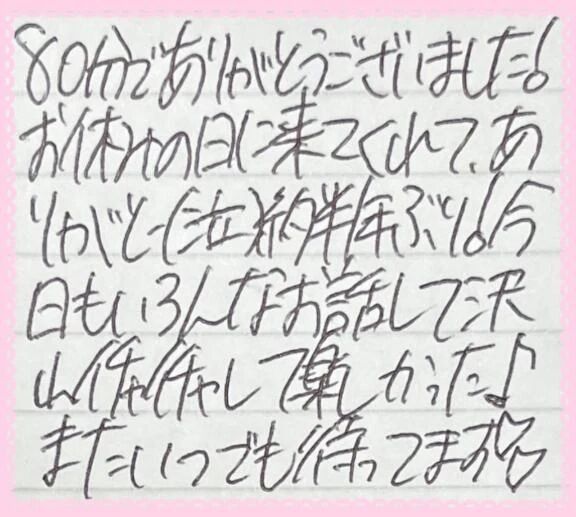 80分でありがとうございました!
お休みの日に来てくれて、あ
りがとー(泣)約半年ぶり!今
日もいろんなお話して沢
山イチャイチャして楽しかった♪
またいつでも待ってます♡♡